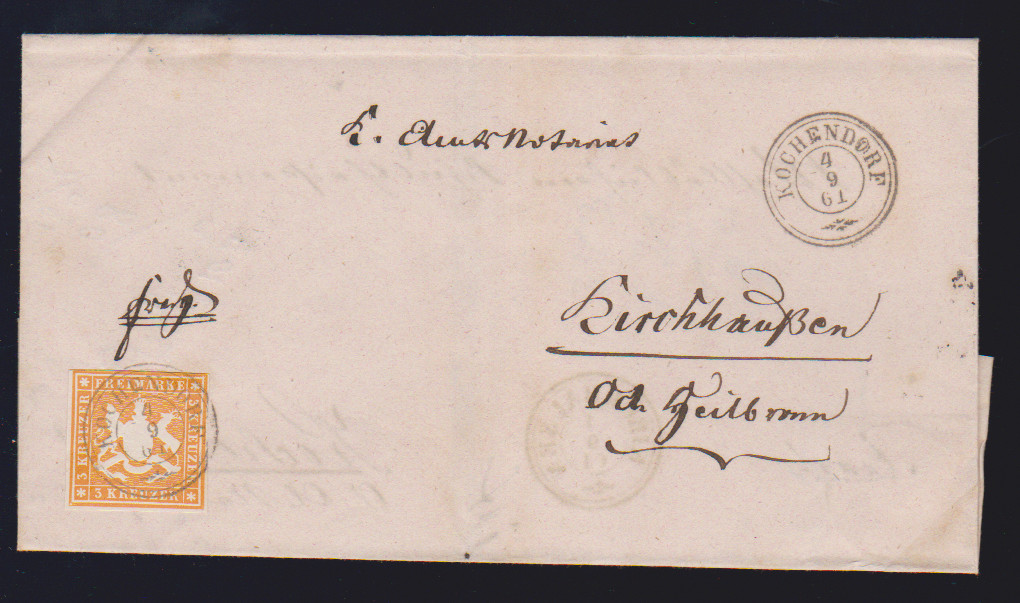 K. Amtsnotariat
KOCHENDORF
4
9
61
frei.
Kirchhaußen
OA. Heilbronn
FREIMARKE
3 KREUZER
3 KREUZER
3 KREUZER
4
9
61